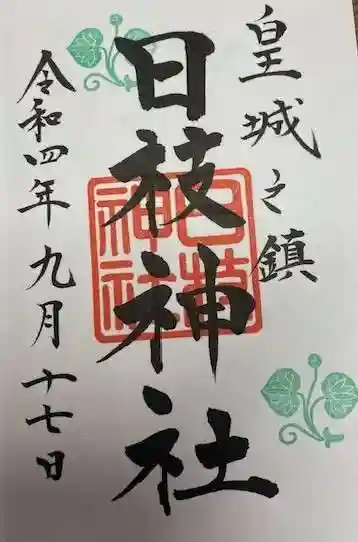 皇城之鎮
日枝神社
令和四年九月十七日
日枝
神社